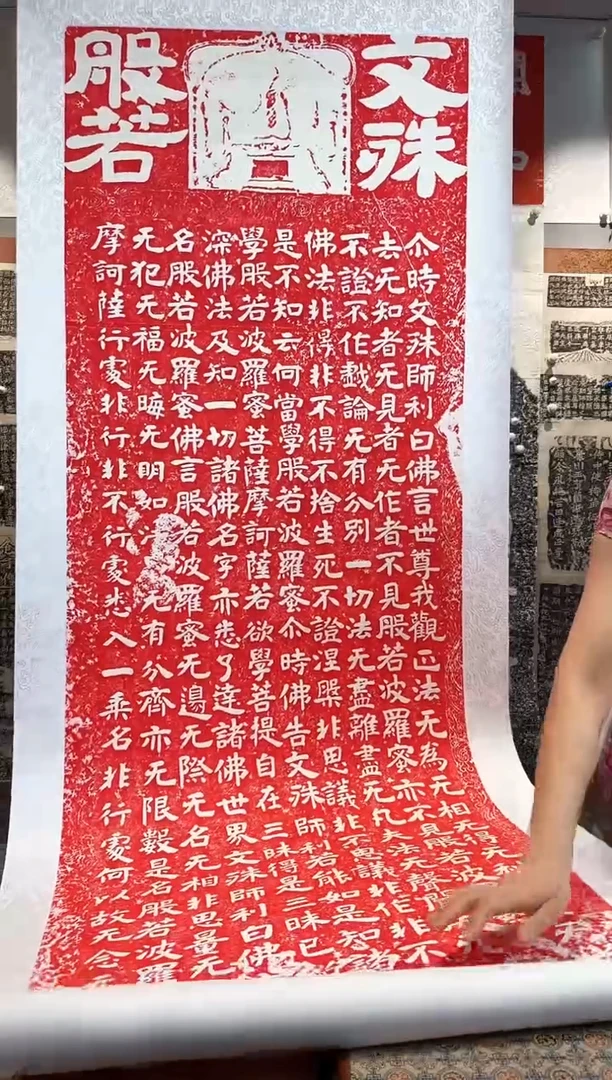 文殊
般若
尒時文殊師利白佛言世尊我觀正法无為无相无得无
去无知者无見者无作者不見般若波羅蜜亦不見般若波
不證不作戱論无有分別一切法无盡離盡无凡夫法无聲
佛法非得非不得不捨生死不證涅槃非思議非不思議非作非不
是不知云何當學般若波羅蜜尒時佛告文殊師利若能如是知諸
學般若波羅蜜菩薩摩訶薩若欲學菩提自在三昧得是三昧已
深佛法及知一切諸佛名字亦悉了達諸佛世界文殊師利白佛
名般若波羅蜜佛言般若波羅蜜无邊无際无名无相非思量无
无犯无福无晦无明如无有分齊亦无限數是名般若波羅
摩訶薩行處非行非不行處悉入一乘名非行處何以故无念